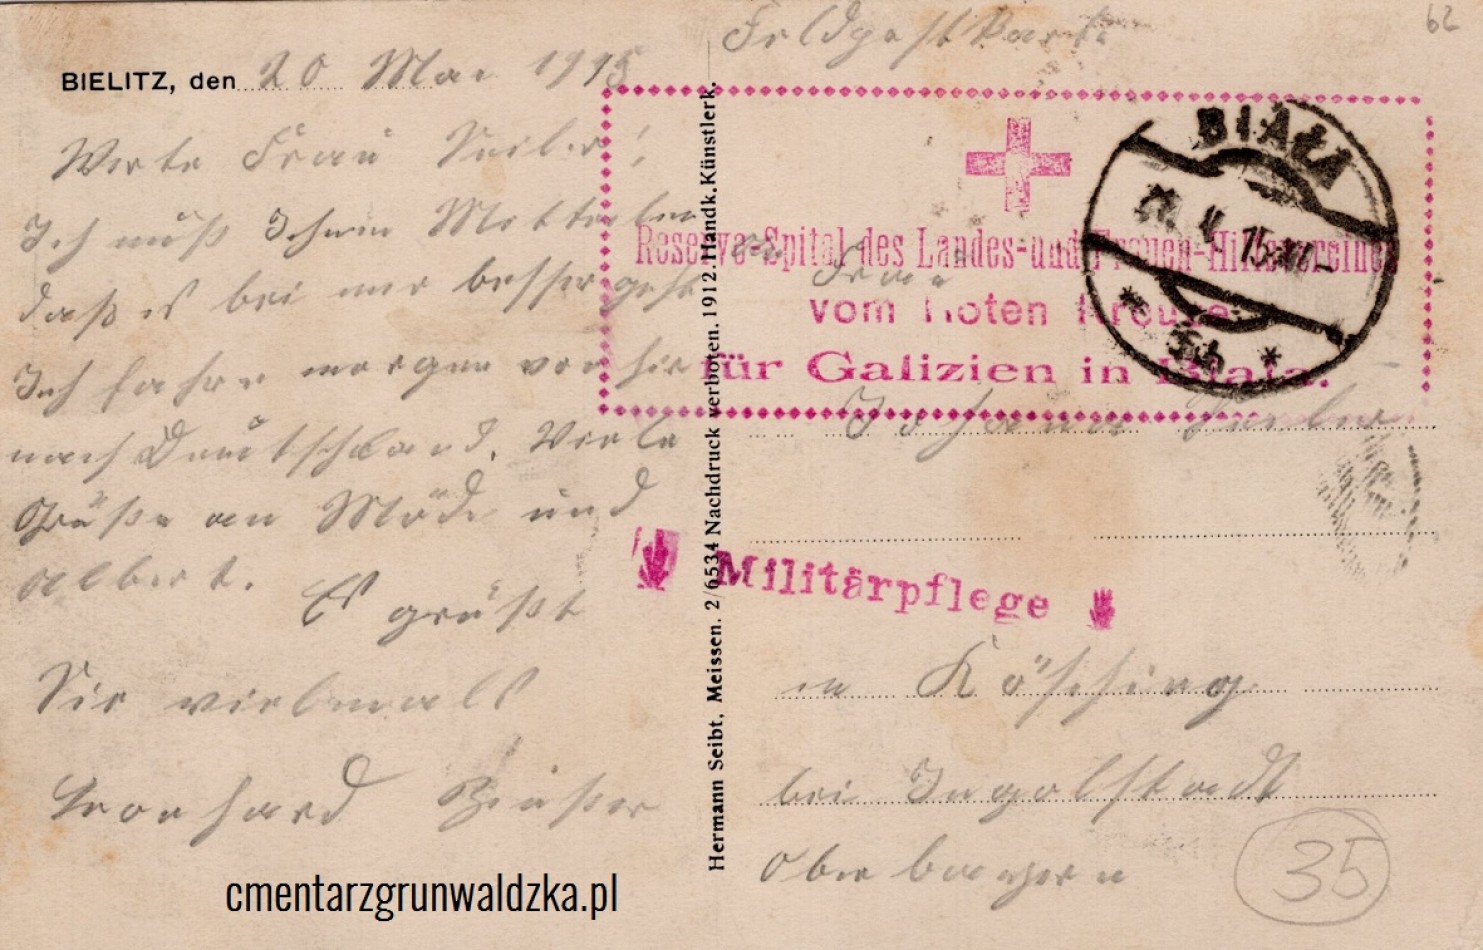 Feldpostkarte
62
BIELITZ, den 20 Mai 1915
Werte Frau Seiler!
Ich muß Ihnen Mitteilen
daß es bei mir besser geht
Ich fahre morgen von hir
nach Deutschland. Viele
Grüße an und
Albert. Es grüßt
Sie vielmals
Leonhard
Hermann Seibt, Meissen. 2/6534 Nachdruck verboten. 1912. Handk. Künstlerk.
Reserve-Spital des Landes- und Frauen-Hilfsvereines
vom Roten Kreuze
für Galizien in Biala.
BIAŁA
V 15
an Frau
Johanna Seiler
Militärpflege
in Kösching
bei Ingolstadt
Oberbayern
35
cmentarzgrunwaldzka.pl